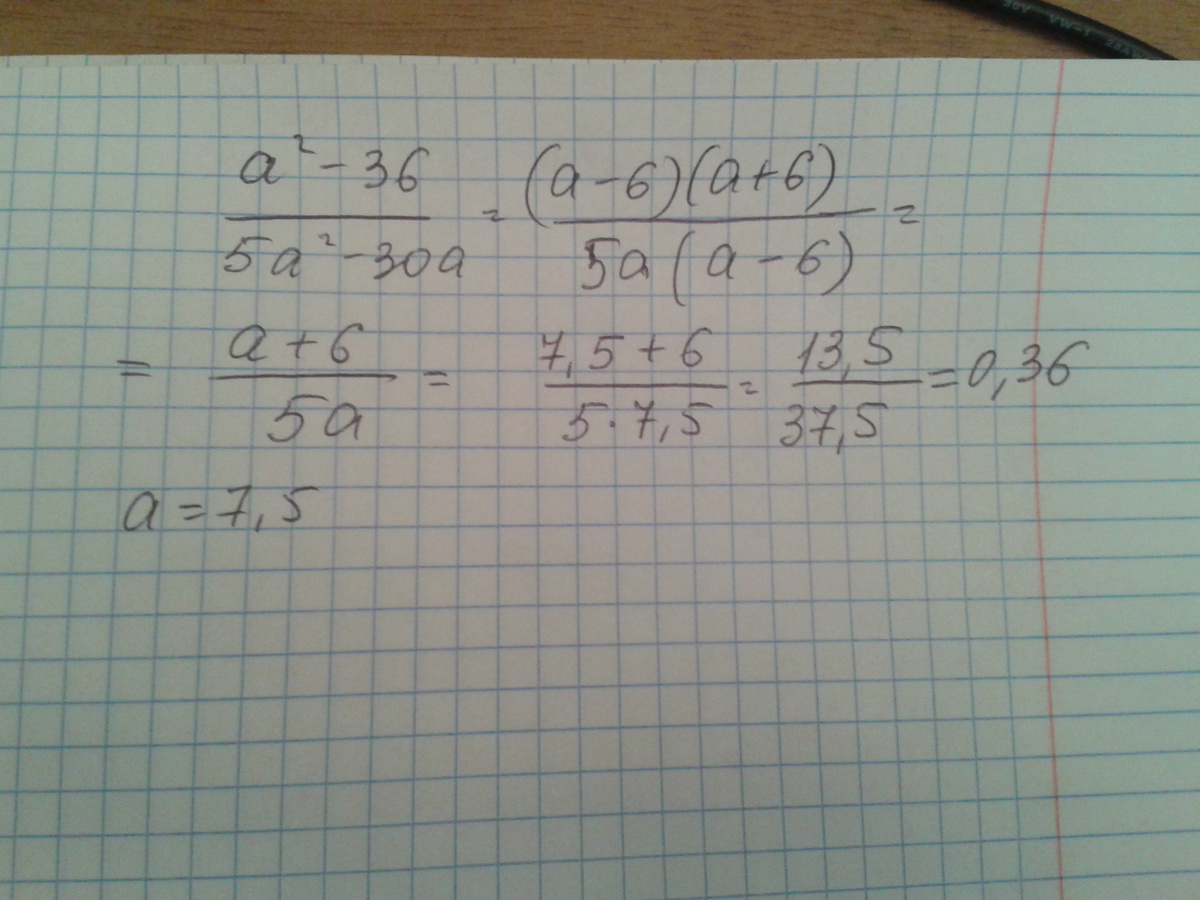 30V VW-1
a² - 36 / 5a² - 30a = (a - 6)(a + 6) / 5a(a - 6) =
= a + 6 / 5a = 7,5 + 6 / 5 · 7,5 = 13,5 / 37,5 = 0,36
a = 7,5